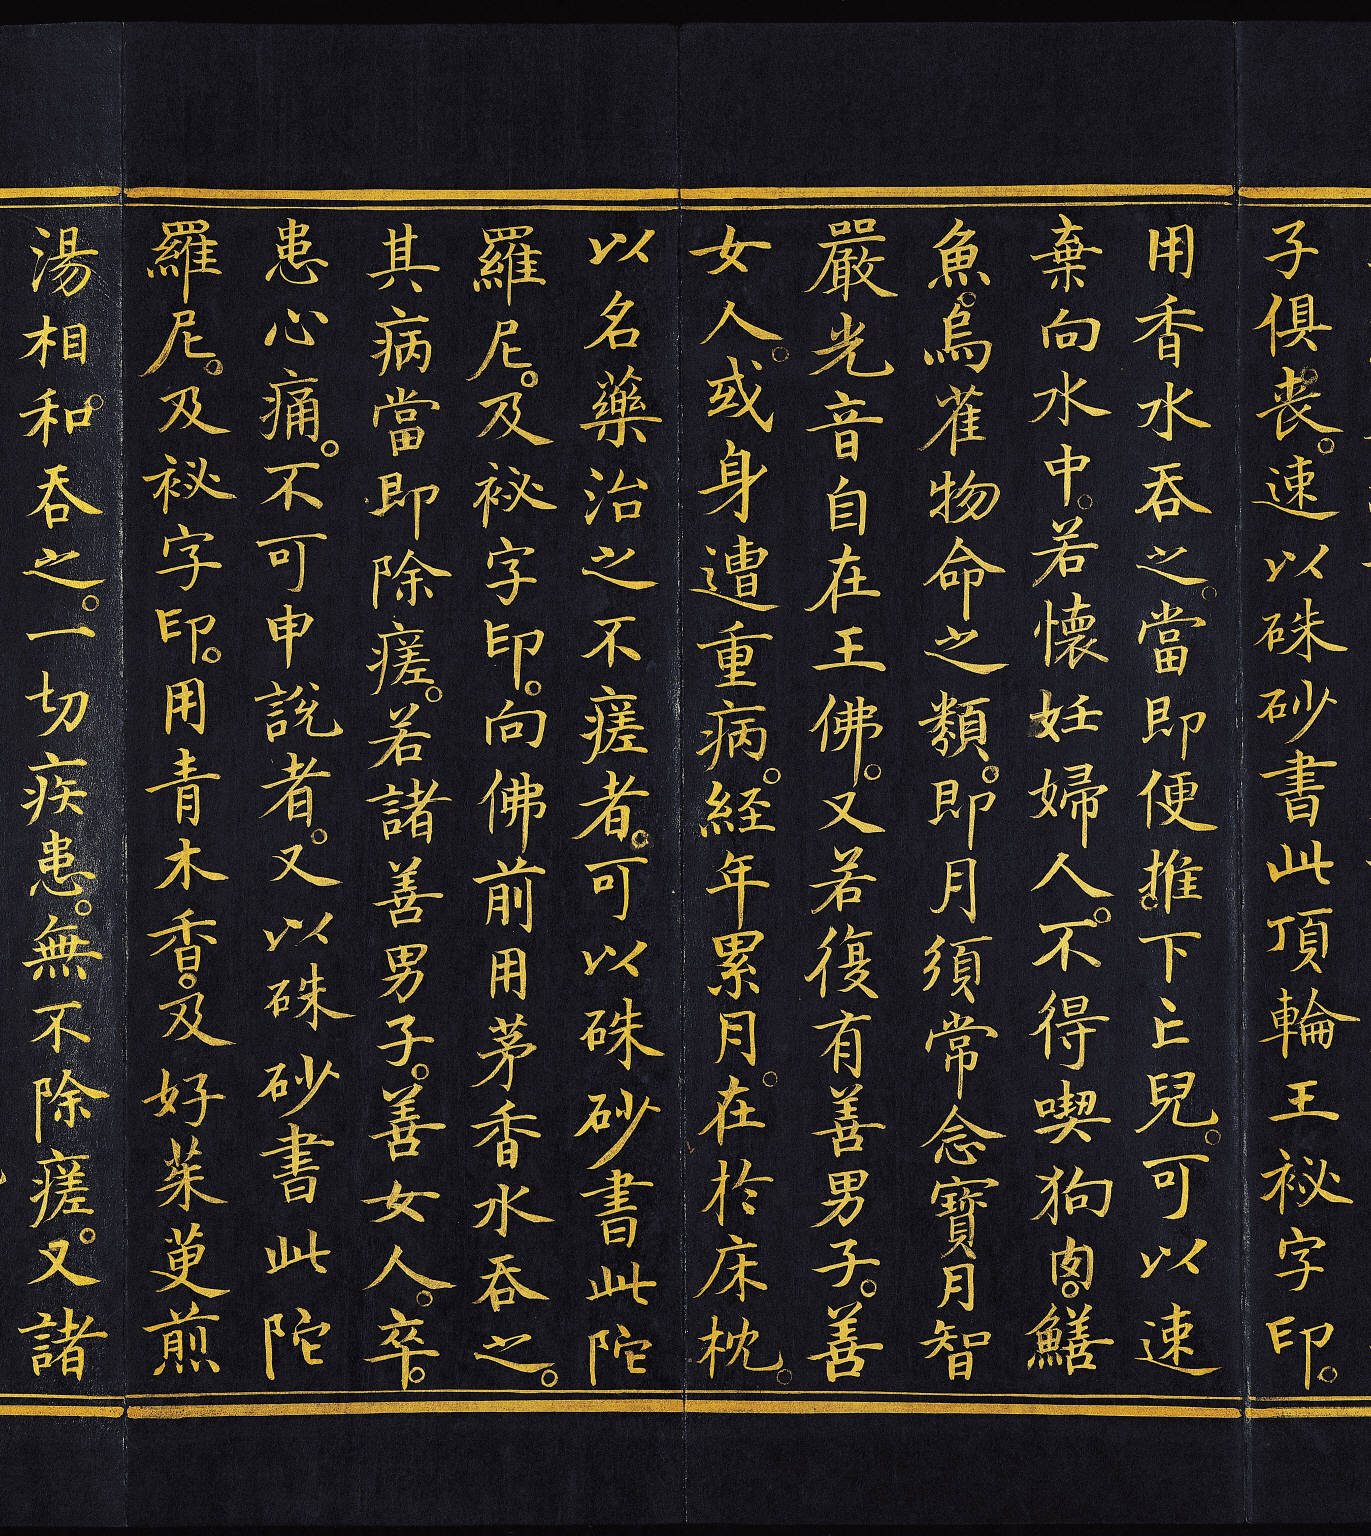 子俱丧。速以硃砂書此頂輪王祕字印。
用香水吞之。當即便推下亡兒。可以速
棄向水中。若懷妊婦人。不得喫狗肉。鱔
魚。烏雀物命之類。即月須常念寶月智
嚴光音自在王佛。又若復有善男子。善
女人。或身遭重病。経年累月。在於床枕。
以名藥治之不瘥者。可以硃砂書此陀
羅尼。及祕字印。向佛前用茅香水吞之。
其病當即除瘥。若諸善男子。善女人。卒。
患心痛。不可申說者。又以硃砂書此陀
羅尼。及祕字印。用青木香。及好茱萸煎
湯相和。吞之。一切疾患。無不除瘥。又諸